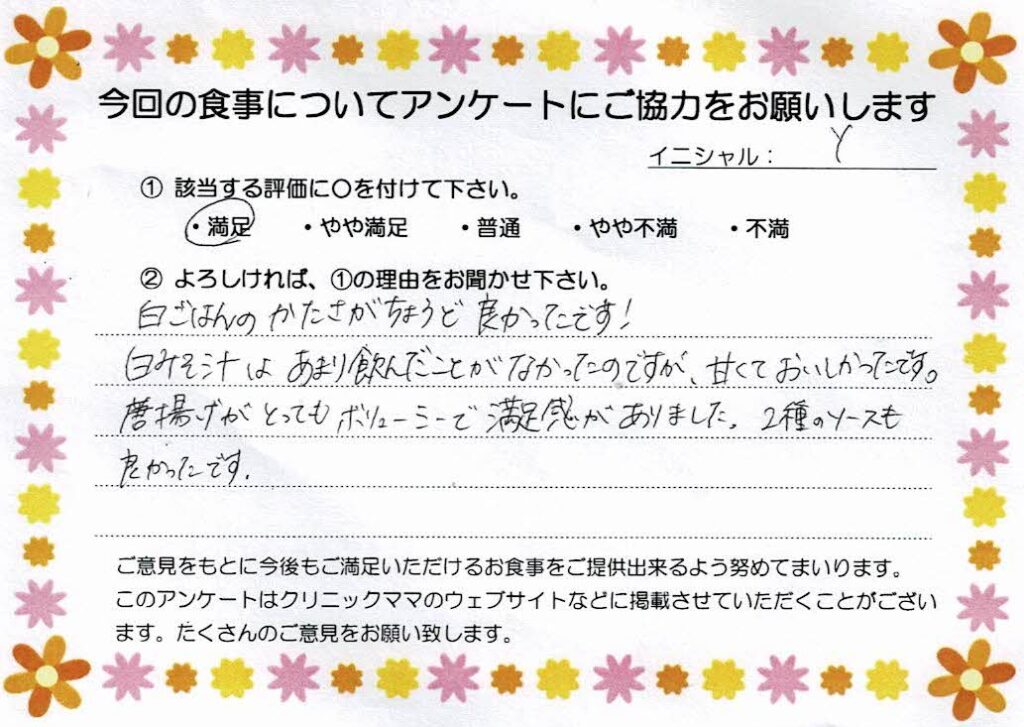 今回の食事についてアンケートにご協力をお願いします
イニシャル： Y
① 該当する評価に〇を付けて下さい。
・満足 ・やや満足 ・普通 ・やや不満 ・不満
② よろしければ、①の理由をお聞かせ下さい。
白ごはんの かたさがちょうど 良かったです！
白みそ汁は あまり飲んだことがなかったのですが、甘くて おいしかったです。
唐揚げが とっても ボリューミーで 満足感がありました。2種のソースも
良かったです。
ご意見をもとに今後もご満足いただけるお食事をご提供出来るよう努めてまいります。
このアンケートはクリニックママのウェブサイトなどに掲載させていただくことがござい
ます。たくさんのご意見をお願い致します。